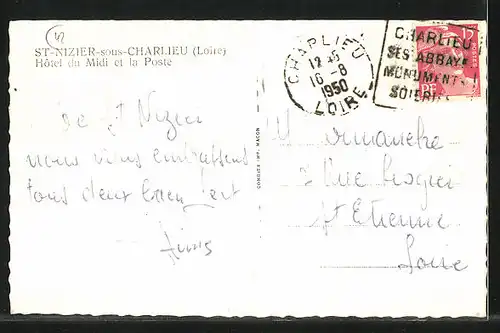 ST-NIZIER-sous-CHARLIEU (Loire)
Hôtel du Midi et la Poste
CHARLIEU
12 45
16-8
1950
LOIRE
CHARLIEU
SES ABBAYE
MONUMENTS
SOIERIE
12
de St Nizier
nous vous embrassons
tous deux bien fort
COMBIER IMP. MACON
M Dumanche
Rue
St Etienne
Loire